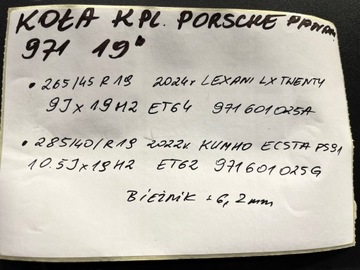 KOŁA KPL. PORSCHE
971 19"
• 265/45 R19 2024r LEXANI LXTWENTY
9J x 19 H2 ET64 971601025A
• 285/40/R19 2022r KUMHO ECSTA PS91
10.5J x 19 H2 ET62 971601025G
BIEŻNIK = 6,2mm